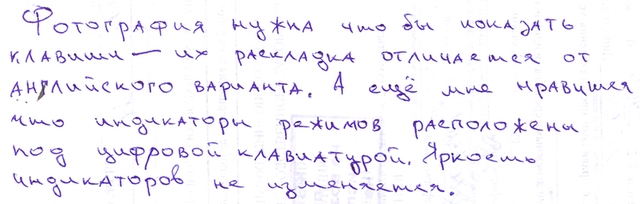 Фотография нужна что бы показать
клавиши — их раскладка отличается от
английского варианта. А ещё мне нравится
что индикаторы режимов расположены
под цифровой клавиатурой. Яркость
индикаторов не изменяется.